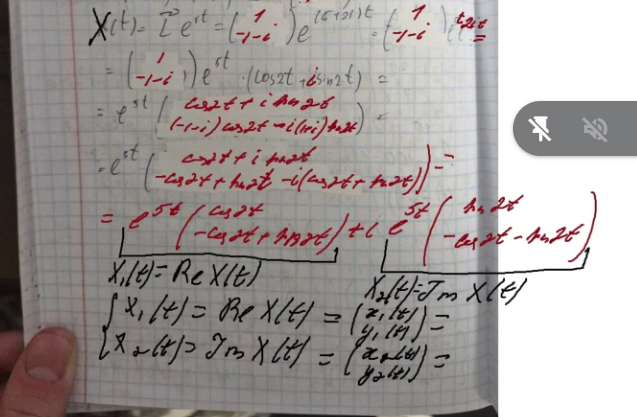 X(t) = Ɩ⃗ e^{rt} = (1 / -1-i) e^{(5+2i)t} = (1 / -1-i) e^{5t} e^{2it} =
= (1 / -1-i) e^{5t} · (cos2t + i sin2t) =
= e^{5t} (cos2t + i sin2t / (-1-i)cos2t - i(1+i)sin2t) =
= e^{5t} (cos2t + i sin2t / -cos2t + sin2t - i(cos2t + sin2t)) =
= e^{5t} (cos2t / -cos2t + sin2t) + i e^{5t} (sin2t / -cos2t - sin2t)
X₁(t) = Re X(t) X₂(t) = Im X(t)
{ X₁(t) = Re X(t) = (x₁(t) / y₁(t)) =
{ X₂(t) = Im X(t) = (x₂(t) / y₂(t)) =